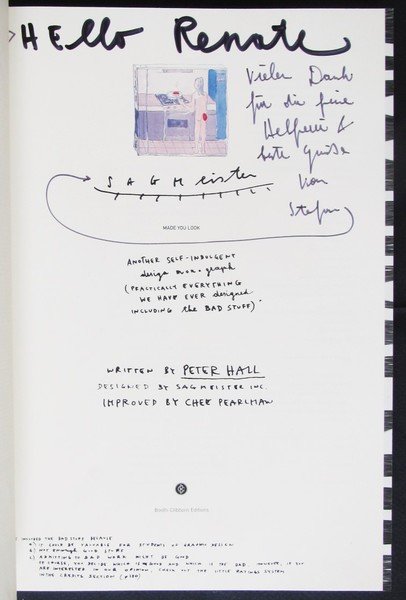 HELLO Renate
Vielen Dank
für die feine
Helferei &
beste Grüße
von
Stefan
SAGMEISTER
MADE YOU LOOK
ANOTHER SELF-INDULGENT
design mono-graph
(PRACTICALLY EVERYTHING
WE HAVE EVER designed
INCLUDING the BAD STUFF)*
WRITTEN BY PETER HALL
DESIGNED BY SAGMEISTER INC.
IMPROVED BY CHEE PEARLMAN
Booth-Clibborn Editions
INCLUDED THE BAD STUFF BECAUSE
A) IT COULD BE VALUABLE FOR STUDENTS OF GRAPHIC DESIGN
B) NOT ENOUGH GOOD STUFF
C) ADMITTING TO BAD WORK MIGHT BE GOOD
OF COURSE, YOU DECIDE WHICH IS GOOD AND WHICH IS THE BAD. HOWEVER, IF YOU
ARE INTERESTED IN OUR OPINION, CHECK OUT THE LITTLE RATINGS SYSTEM
IN THE CREDITS SECTION